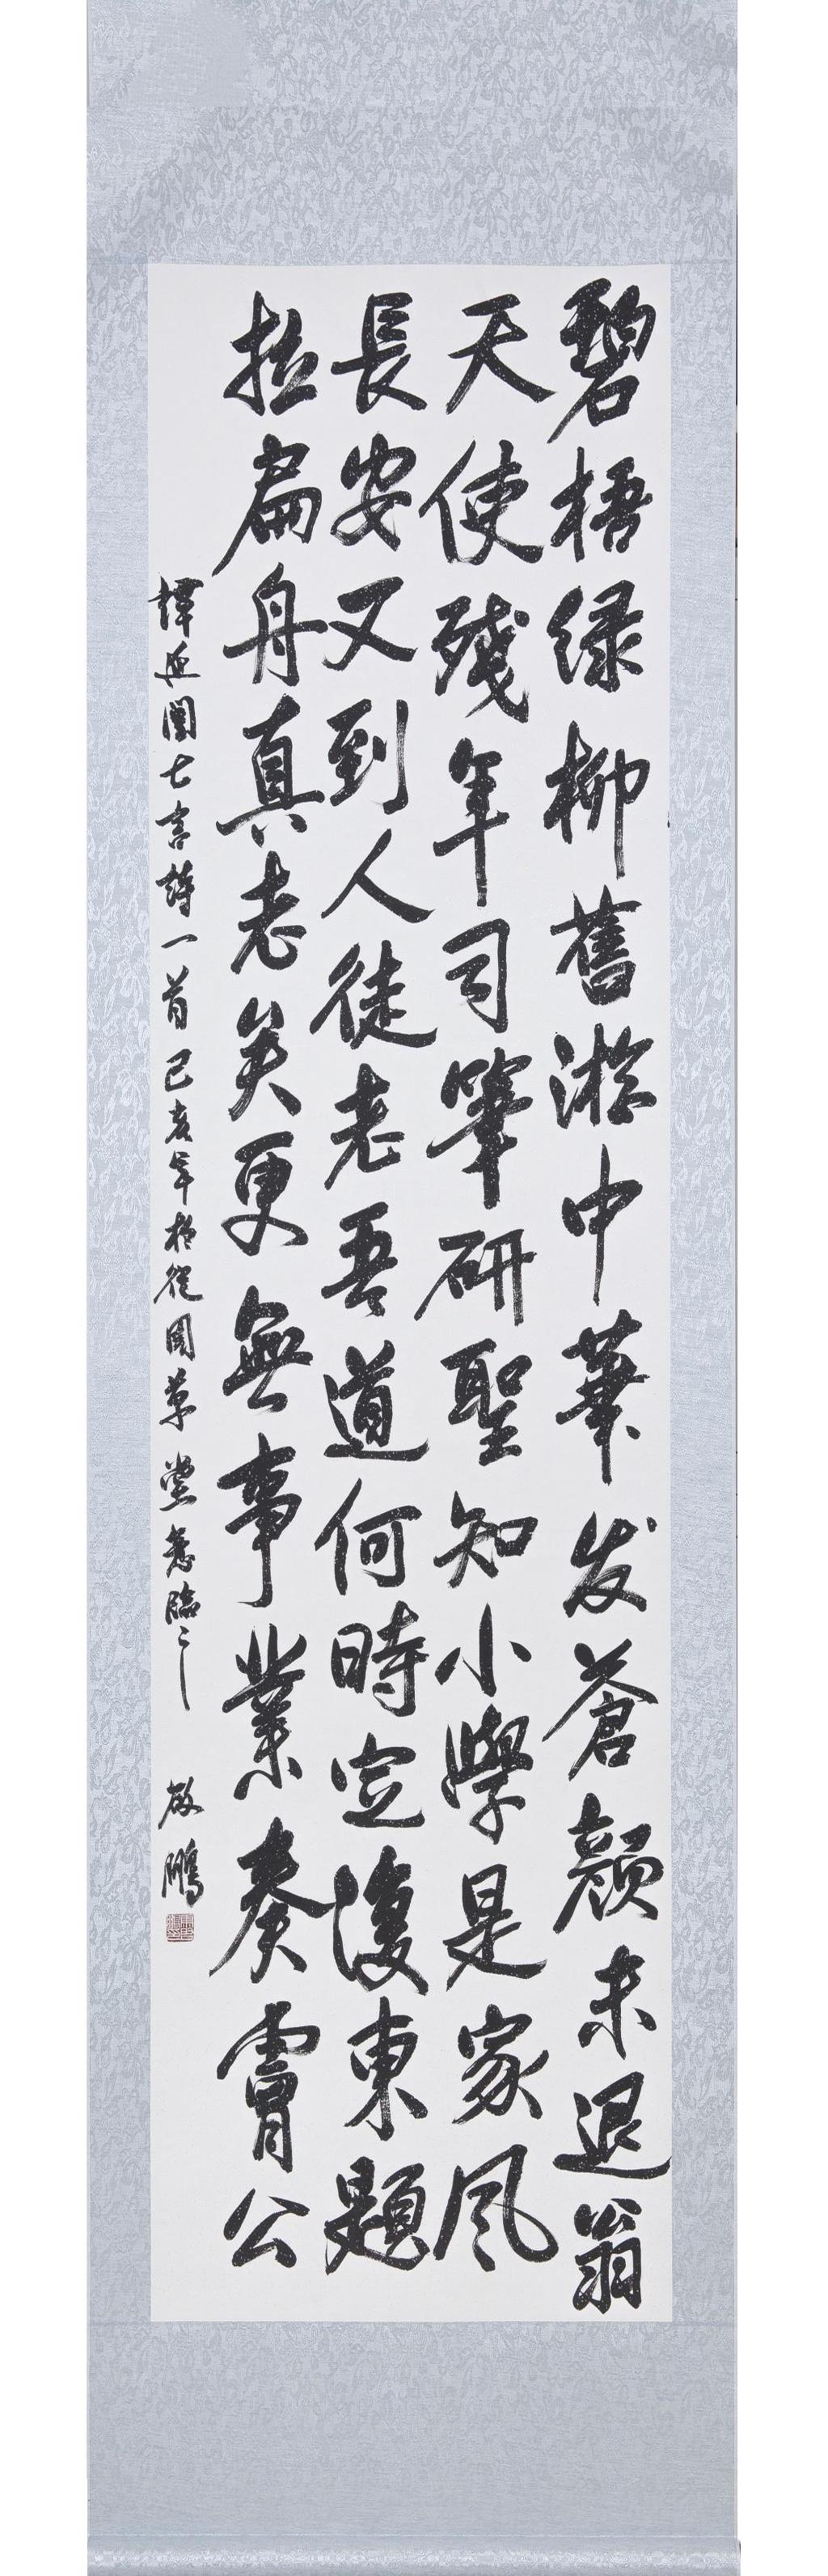 碧梧綠柳舊淞中華发蒼顏未退翁
天使殘年司筆研聖知小學是家風
長安又到人徒老吾道何時定復東題
拉扁舟真老矣更無事業奏膚公
譚延闓七言詩一首己亥年於從園草堂意臨之
啟鵬